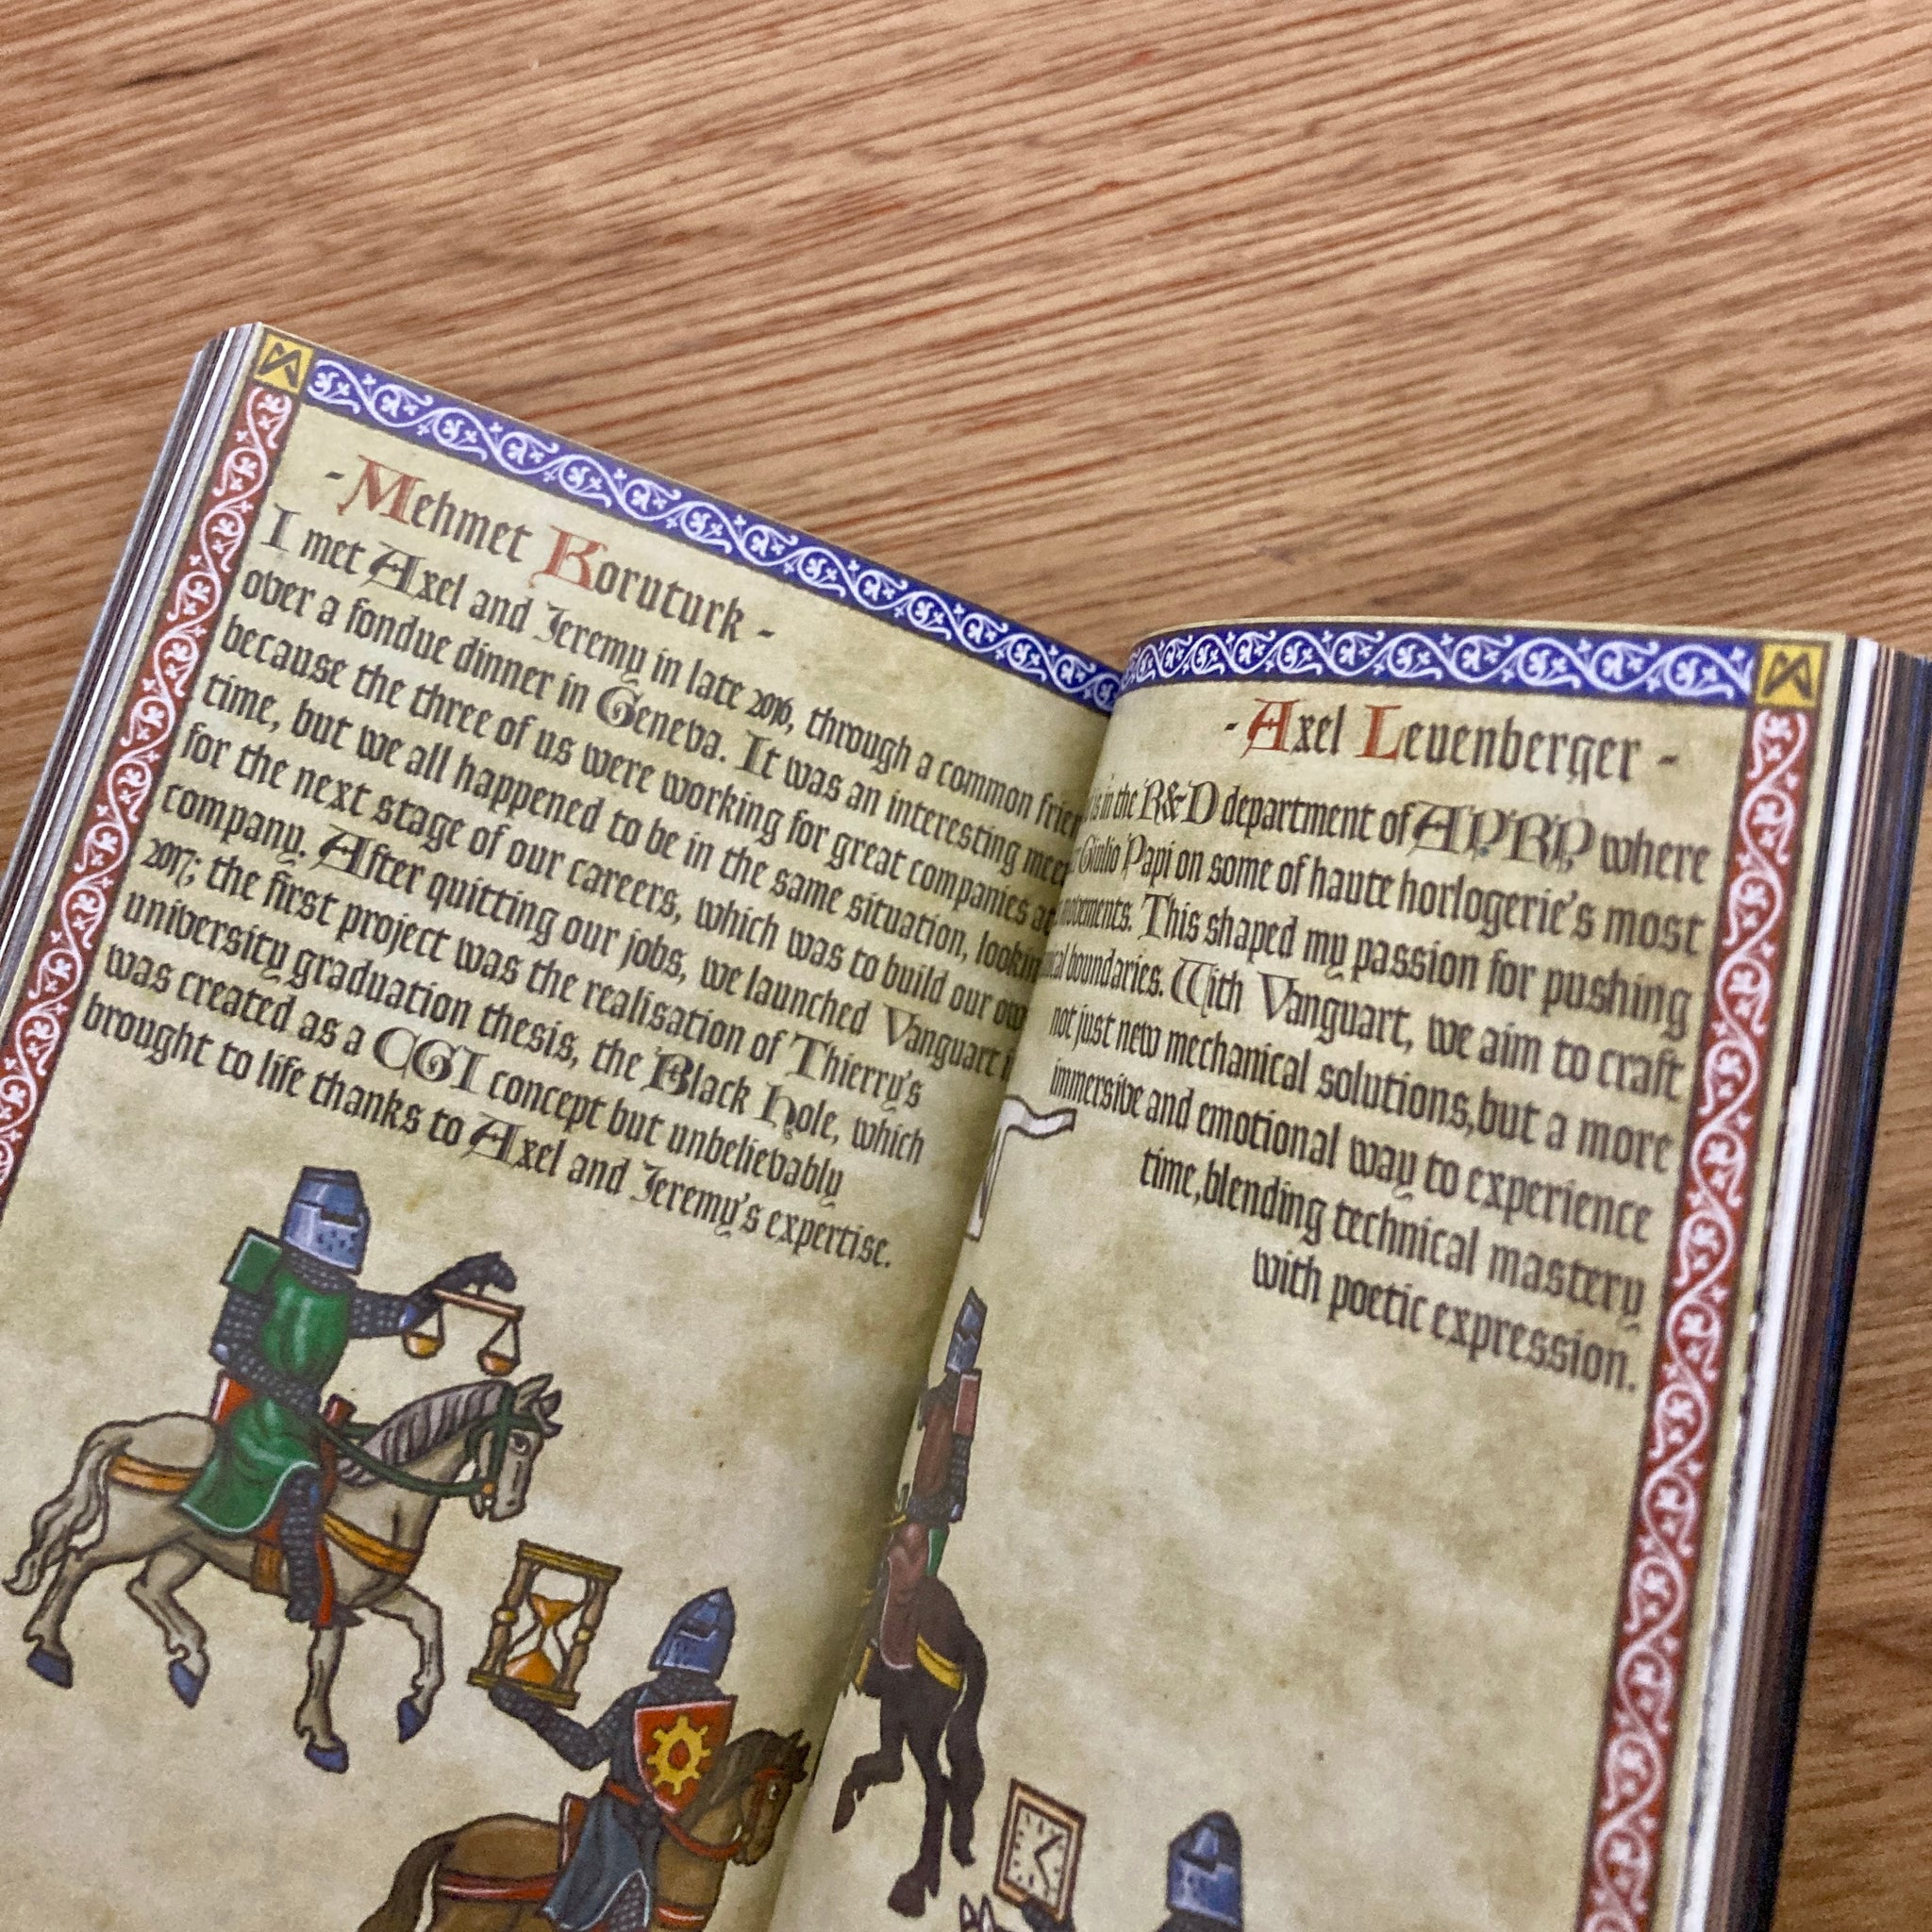 - Mehmet Koruturk -
I met Axel and Jeremy in late 2016, through a common
over a fondue dinner in Geneva. It was an interesting
because the three of us were working for great companies at
time, but we all happened to be in the same situation,
for the next stage of our careers, which was to build our
company. After quitting our jobs, we launched Vanguart
2017; the first project was the realisation of Thierry's
university graduation thesis, the Black Hole, which
was created as a CGI concept but unbelievably
brought to life thanks to Axel and Jeremy's expertise.
- Axel Leuenberger -
in the R&D department of APRP where
Giulio Papi on some of haute horlogerie's most
This shaped my passion for pushing
boundaries. With Vanguart, we aim to craft
not just new mechanical solutions,but a more
immersive and emotional way to experience
time,blending technical mastery
with poetic expression.